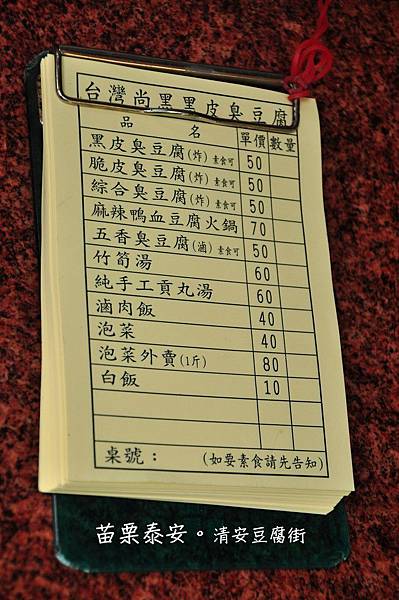 台灣尚黑黑皮臭豆腐
品 名 單價 數量
黑皮臭豆腐(炸) 素食可 50
脆皮臭豆腐(炸) 素食可 50
綜合臭豆腐(炸) 素食可 50
麻辣鴨血豆腐火鍋 70
五香臭豆腐(滷) 素食可 50
竹筍湯 60
純手工貢丸湯 60
滷肉飯 40
泡菜 40
泡菜外賣(1斤) 80
白飯 10
桌號： (如要素食請先告知)
苗栗泰安。清安豆腐街